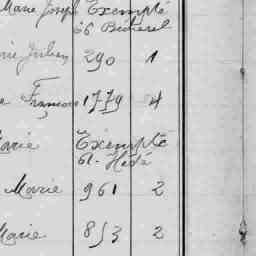 Marie Joseph Exempté
66 Bécherel
Julien 290 1
François 1779 4
Marie Exempté
61. Hédé
Marie 961 2
Marie 853 2